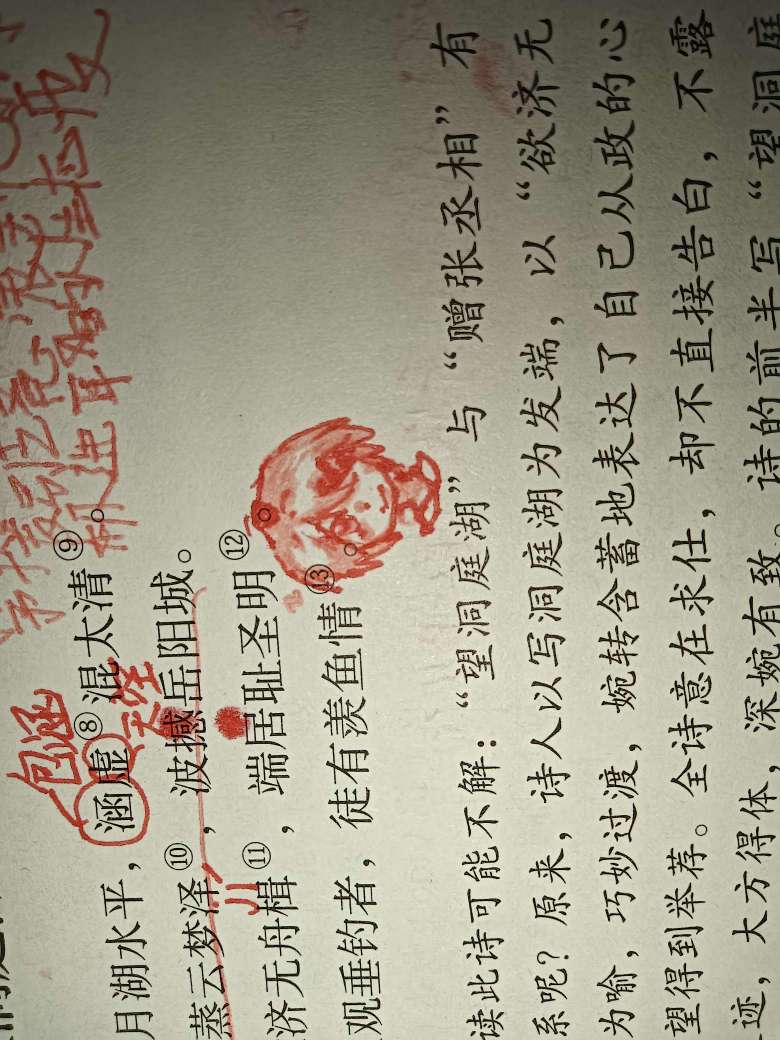 包涵
月湖水平，涵虚⑧混太清⑨。
天空
蒸云梦泽⑩，波撼岳阳城。
济无舟楫⑪，端居耻圣明⑫。
观垂钓者，徒有羡鱼情⑬。
读此诗可能不解：“望洞庭湖”与“赠张丞相”有
系呢？原来，诗人以写洞庭湖为发端，以“欲济无
为喻，巧妙过渡，婉转含蓄地表达了自己从政的心
望得到举荐。全诗意在求仕，却不直接告白，不露
迹，大方得体，深婉有致。诗的前半写“望洞庭